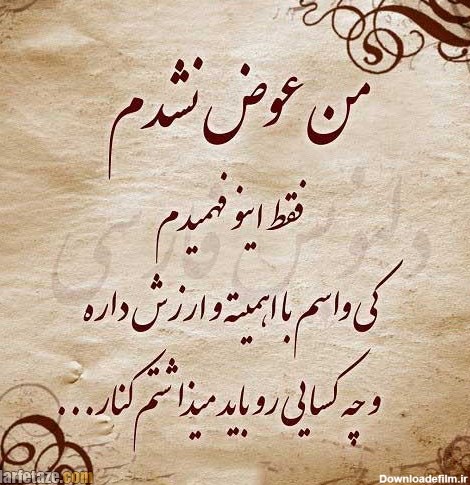 من عوض نشدم
فقط اینو فهمیدم
کی واسم با اهمیته و ارزش داره
و چه کسایی رو باید میذاشتم کنار...
دلنوش فارسی
larfetaze.com
Downloadefilm.ir